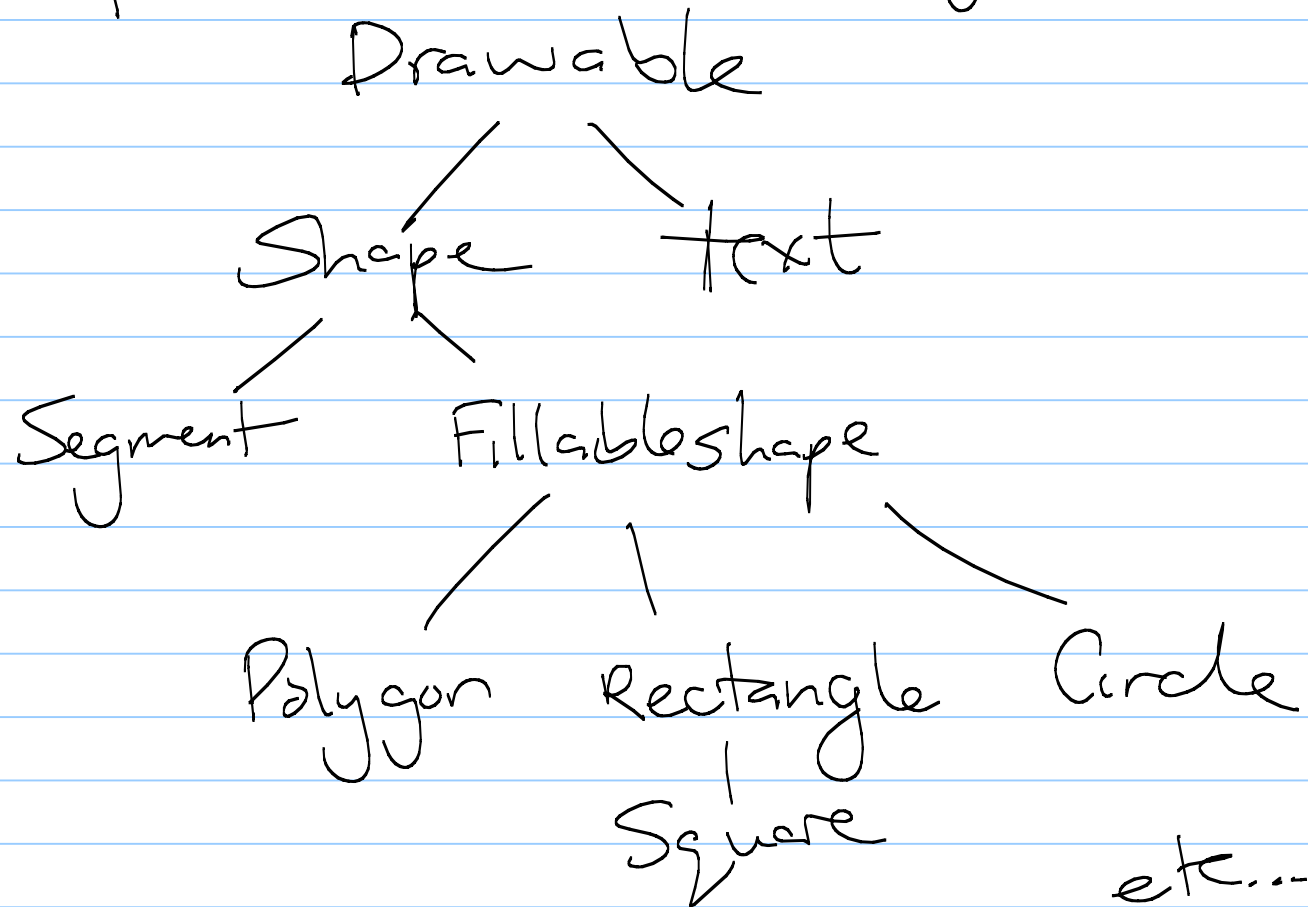 Drawable
Shape text
Segment Fillableshape
Polygon Rectangle Circle
Square
etc...